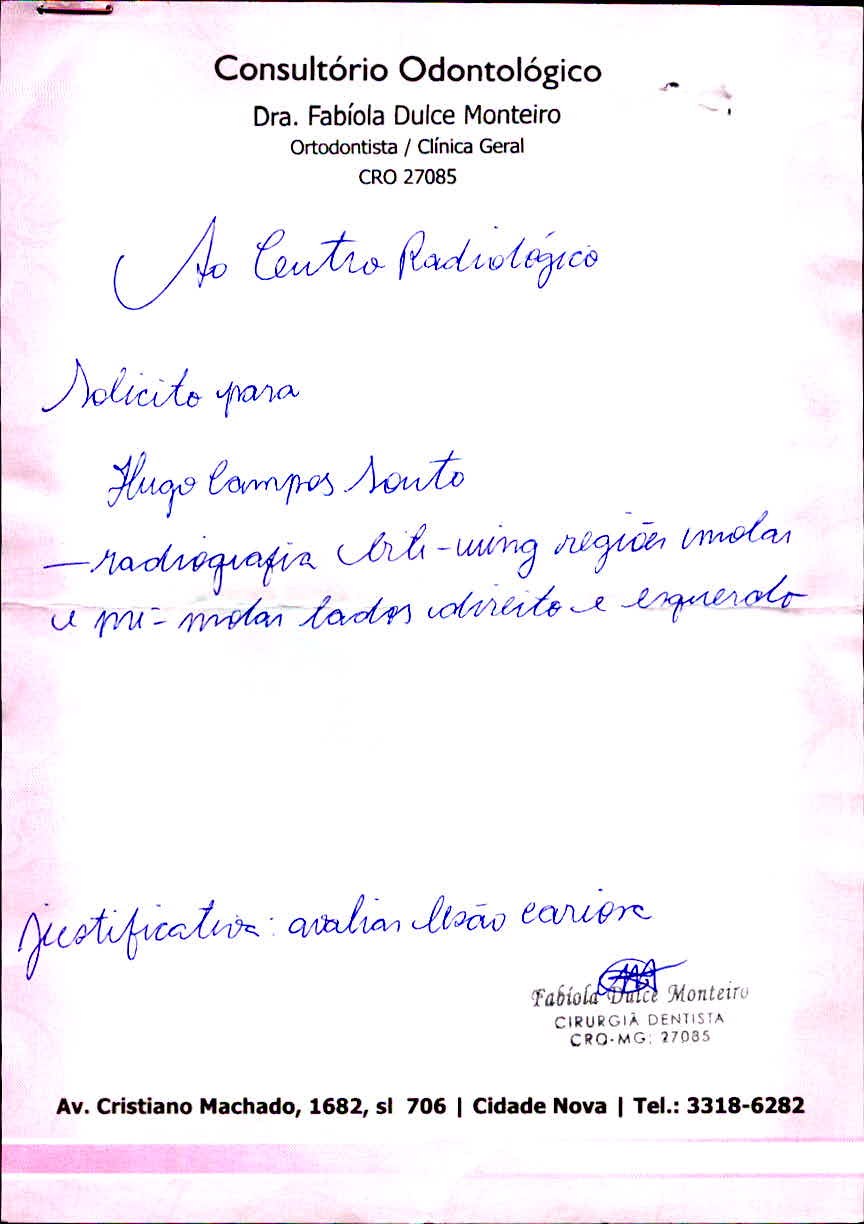 Consultório Odontológico
Dra. Fabíola Dulce Monteiro
Ortodontista / Clínica Geral
CRO 27085
Ao Centro Radiológico
Solicito para
Hugo Campos Souto
— radiografia bite-wing regiões molar
e pré-molar lados direito e esquerdo
Justificativa: avaliar lesão cariosa
Fabíola Dulce Monteiro
CIRURGIÃ DENTISTA
CRO-MG: 27085
Av. Cristiano Machado, 1682, sl 706 | Cidade Nova | Tel.: 3318-6282